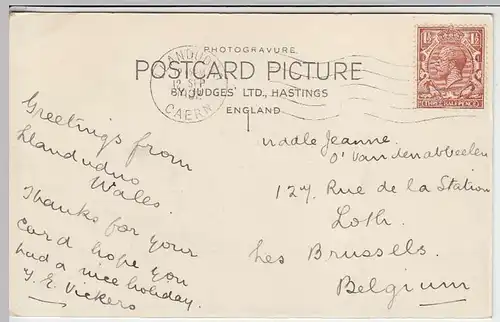 PHOTOGRAVURE.
POSTCARD PICTURE
BY JUDGES' LTD., HASTINGS
ENGLAND
LLANDUDNO
12 SEP
CAERN
THREE HALFPENCE
Greetings from
Llandudno
Wales.
Thanks for your
card hope you
had a nice holiday.
Y. E. Vickers
Mdalle Jeanne
O' Vandenabbeelen
127, Rue de la Station
Loth.
Les Brussels.
Belgium